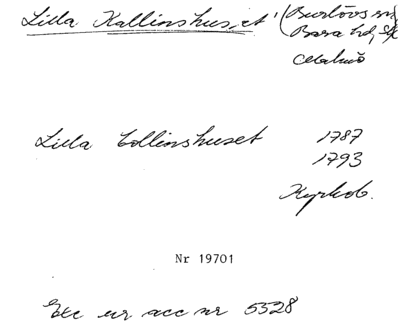 Lilla Kallinshuset (Burlövs sn
Bara hd, Sk
Malmö
Lilla Collinshuset 1787
1793
Kyrkob.
Nr 19701
Exc ur acc nr 5528